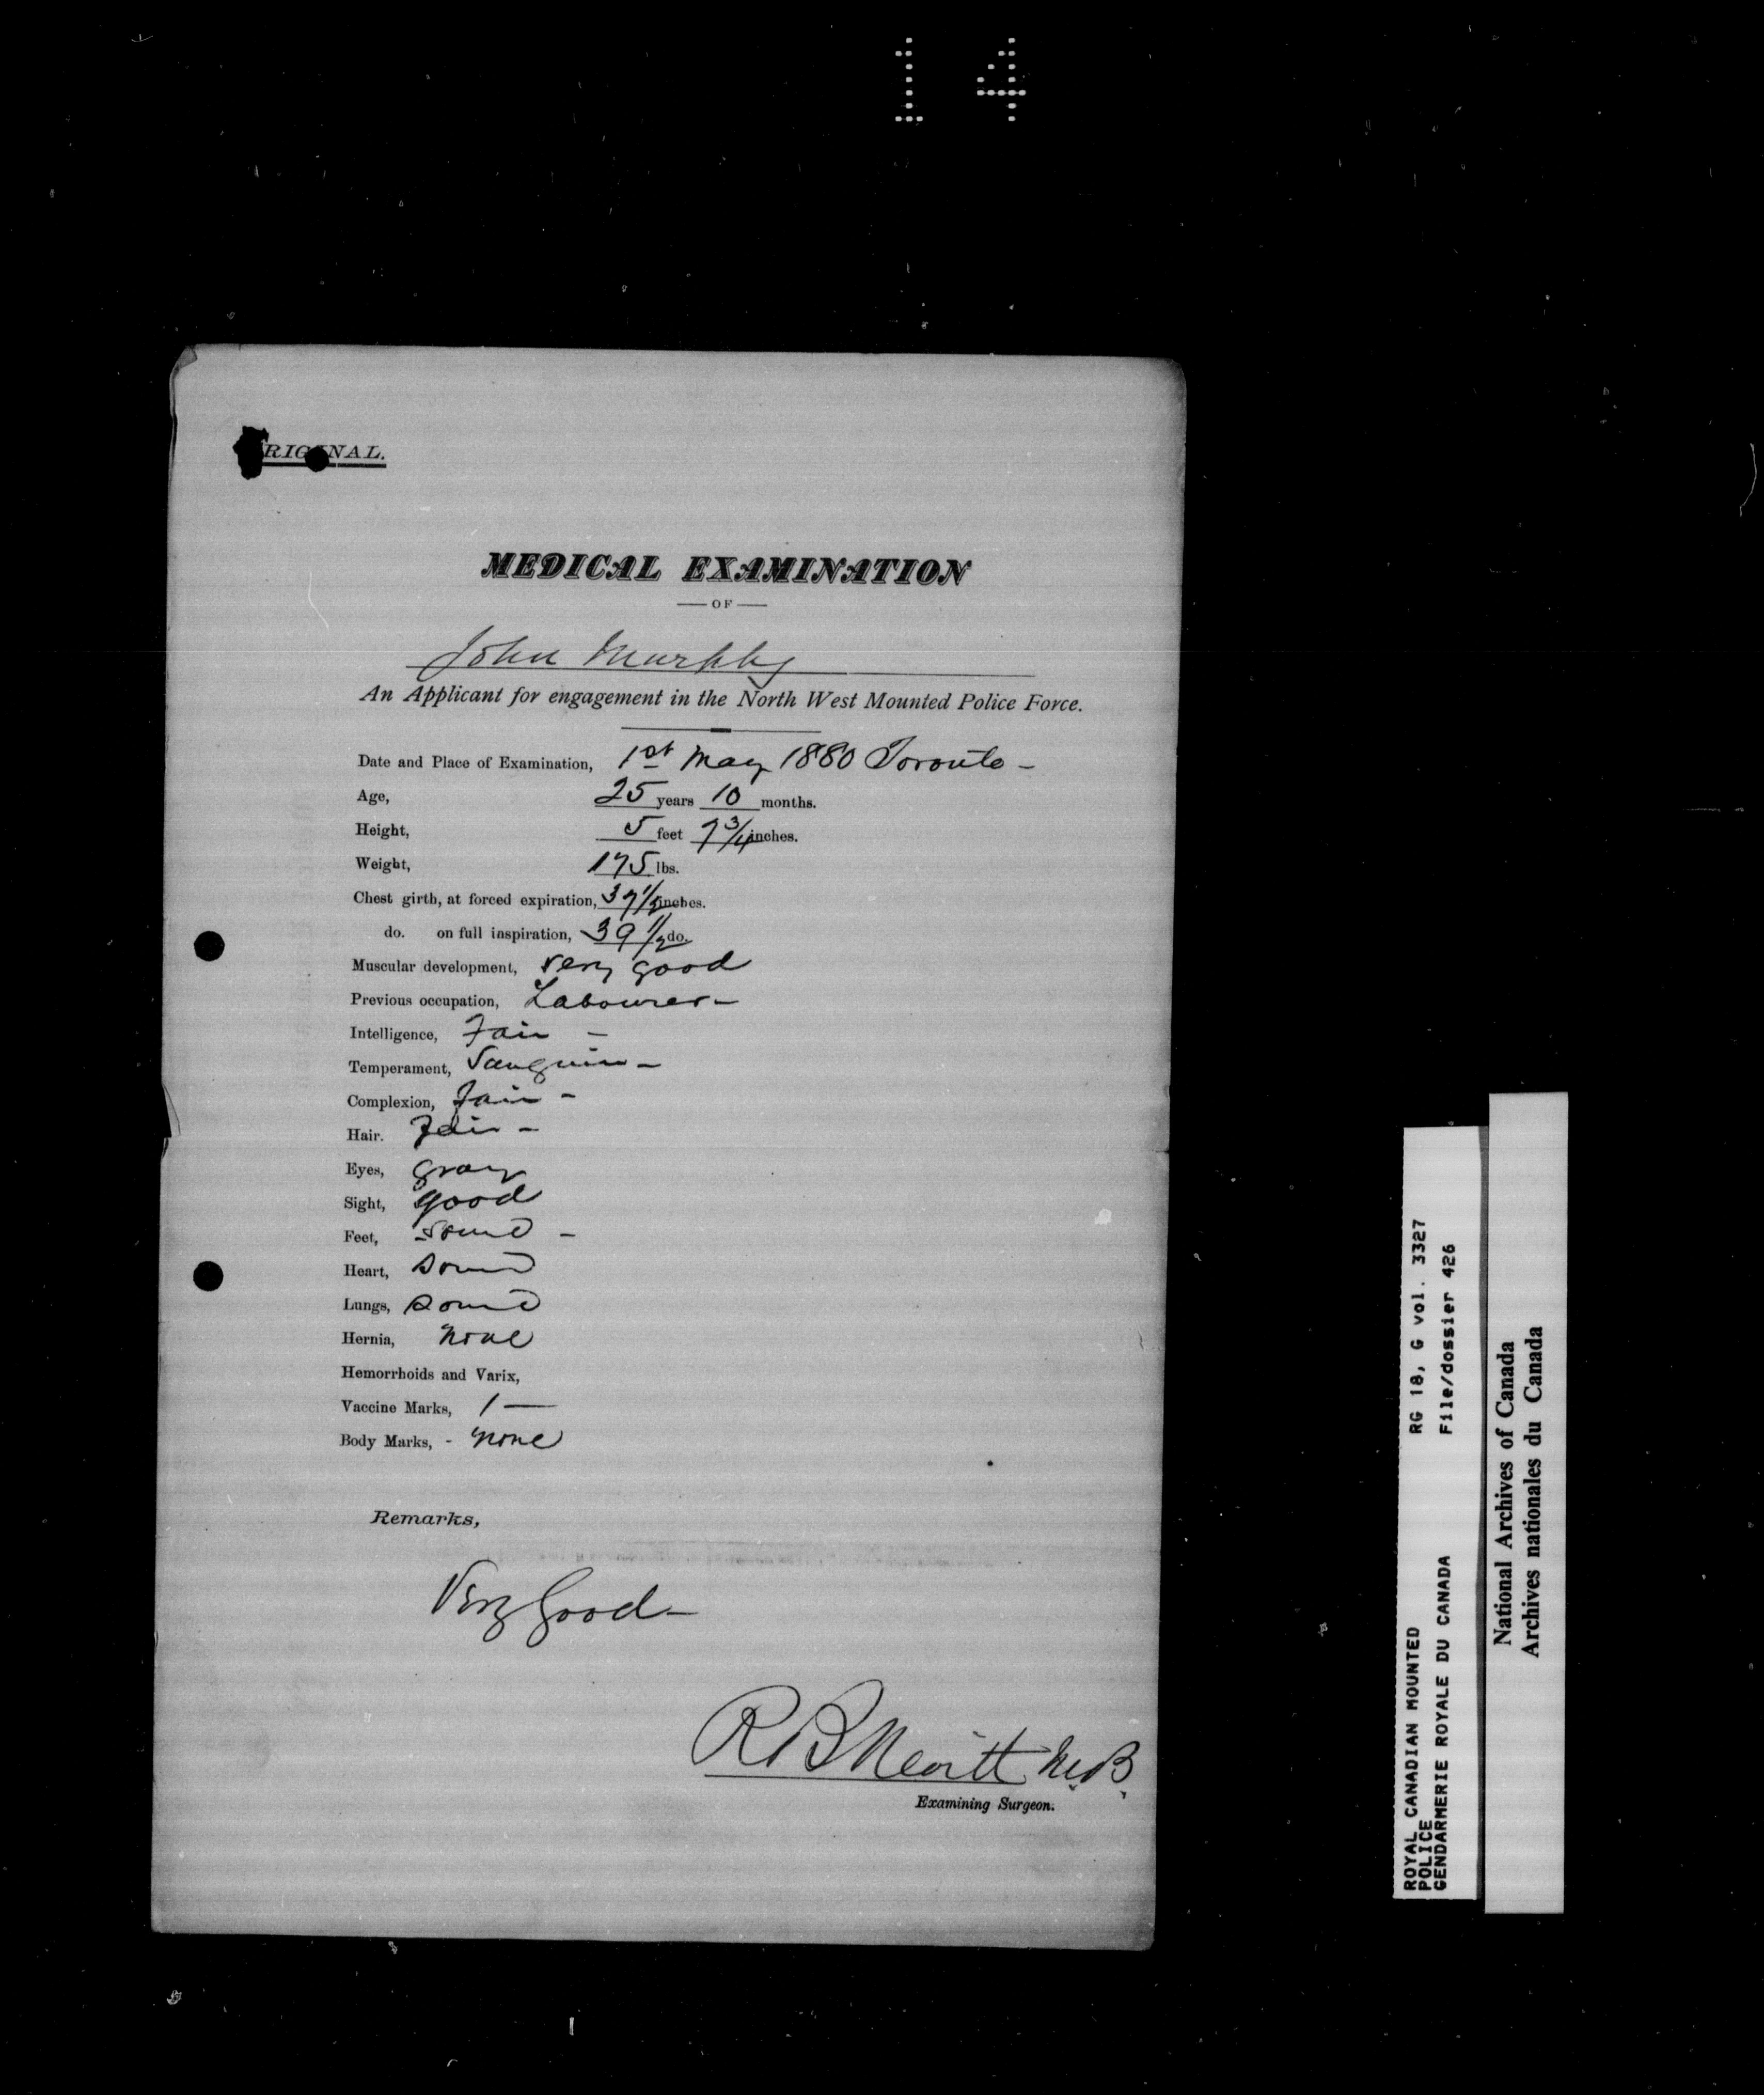 14
ORIGINAL.
MEDICAL EXAMINATION
OF
John Murphy
An Applicant for engagement in the North West Mounted Police Force.
Date and Place of Examination, 1st May 1880 Toronto -
Age, 25 years 10 months.
Height, 5 feet 7 3/4 inches.
Weight, 175 lbs.
Chest girth, at forced expiration, 37 1/2 inches.
do. on full inspiration, 39 1/2 do.
Muscular development, very good
Previous occupation, Labourer -
Intelligence, Fair -
Temperament, Sanguin -
Complexion, Fair -
Hair. Fair -
Eyes, gray
Sight, good
Feet, Sound -
Heart, Sound
Lungs, Sound
Hernia, none
Hemorrhoids and Varix,
Vaccine Marks, 1 —
Body Marks, - none
Remarks,
Very Good -
R B Nevitt M.B.
Examining Surgeon.
ROYAL CANADIAN MOUNTED RG 18, G vol. 3327
POLICE
GENDARMERIE ROYALE DU CANADA File/dossier 426
National Archives of Canada
Archives nationales du Canada